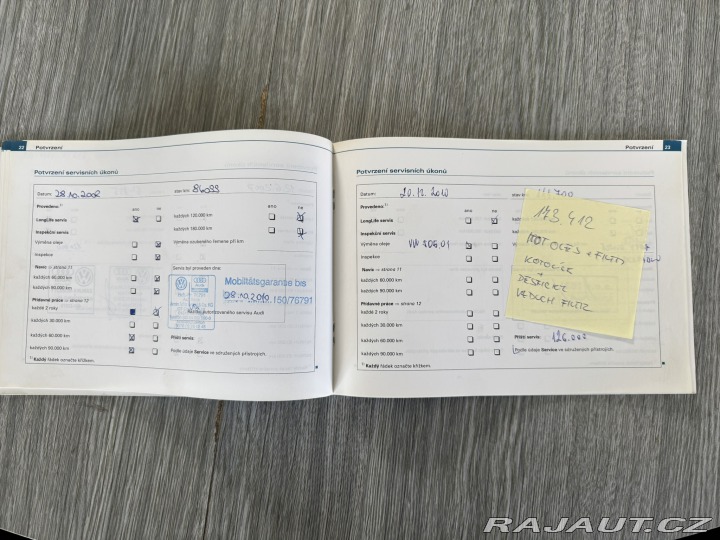 22 Potvrzení
Potvrzení servisních úkonů
Datum: 28.10.2008 stav km: 84099
Provedeno:
ano ne ano ne
LongLife servis každých 120.000 km
Inspekční servis každých 180.000 km
Výměna oleje Výměna ozubeného řemene při km
Inspekce
Navíc — strana 11 Servis byl proveden dne:
každých 60.000 km Mobilitätsgarantie bis
každých 90.000 km 08.10.2010 150/76791
Přídavné práce — strana 12
každé 2 roky autorizovaného servisu Audi
každých 30.000 km
každých 60.000 km Příští servis:
každých 90.000 km Podle údaje Service ve sdružených přístrojích.
1) Každý řádek označte křížkem.
Potvrzení 23
Potvrzení servisních úkonů
Datum: 20.12.2010 stav km:
Provedeno:
ano ne
LongLife servis
Inspekční servis
Výměna oleje VW 506.01
Inspekce
Navíc — strana 11
každých 60.000 km
každých 90.000 km
Přídavné práce — strana 12
každé 2 roky
každých 30.000 km
každých 60.000 km Příští servis:
každých 90.000 km Podle údaje Service ve sdružených přístrojích.
1) Každý řádek označte křížkem.
173.412
KOTOUČE
+
DESTIČKY
VZDUCH FILTR
RAJAUT.CZ